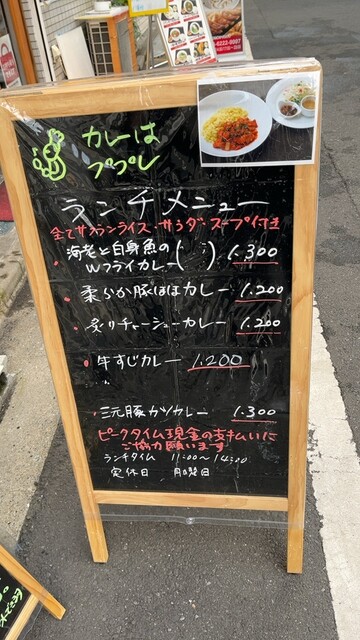 カレーは
ププレ
ランチメニュー
全てサフランライス・サラダ・スープ付き
海老と白身魚の
Wフライカレー( ) 1.300
・柔らか豚ほほカレー 1.200
・炙りチャーシューカレー 1.200
・牛すじカレー 1.200
・三元豚カツカレー 1.300
ピークタイム現金の支払いに
ご協力願います
ランチタイム 11:00～14:00
定休日 月曜日